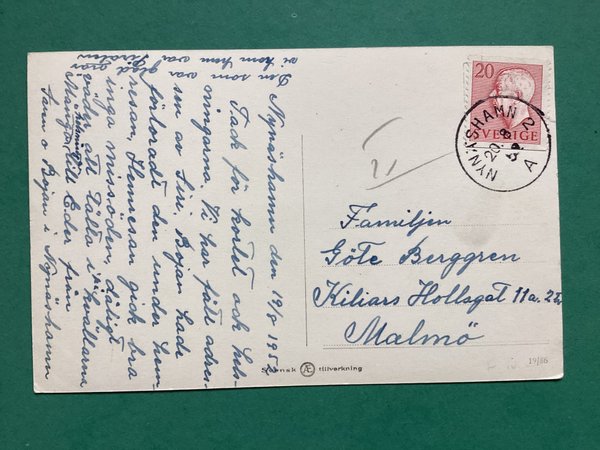 Nynäshamn den 19/8 195
Tack för kortet och häls-
ningarna. Vi har fått adres-
sen av Siri. Bojan hade
förlorat den under hem-
resan. Hemresan gick bra
inga missöden. dåligt
väder att Dalla i
Många till Eder från
Sam o Bojan i Nynäshamn
Den som var glad var
vi kom hem var
20
SVERIGE
NYNÄSHAMN 2
20.8
A
Familjen
Göte Berggren
Kilians Hollsgat 11a.
Malmö
Svensk Æ tillverkning
19/86